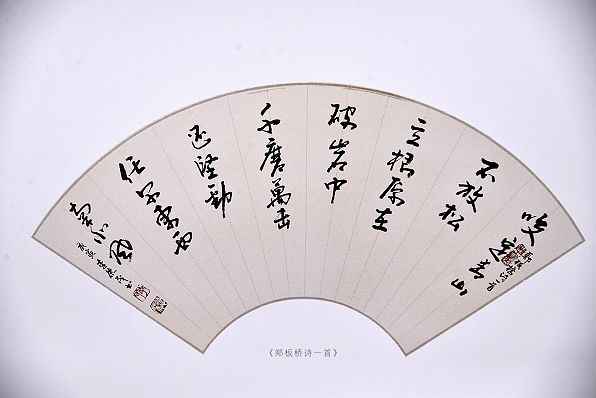 咬定青山
不放松
立根原在
破岩中
千磨萬击
还坚劲
任尔东西
南北风
《郑板桥诗一首》